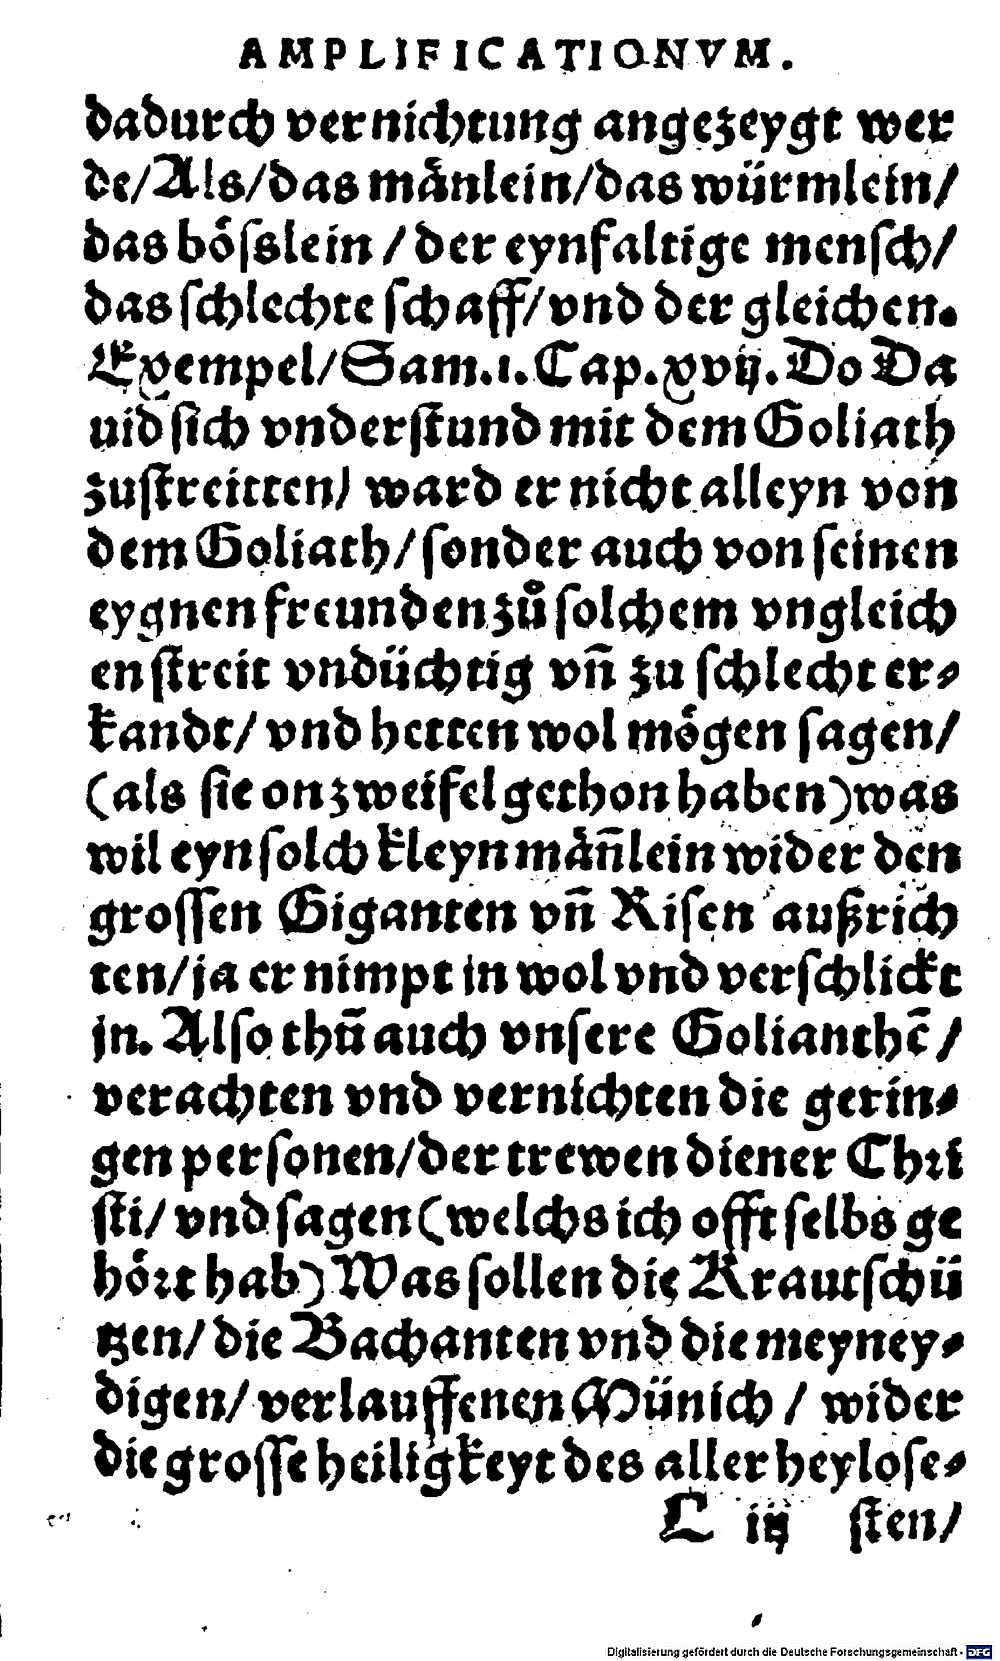 AMPLIFICATIONVM.
dadurch vernichtung angezeygt wer
de/Als/das månlein/das würmlein/
das bôſslein / der eynfaltige menſch/
das ſchlechte ſchaff/vnd der gleichen.
Exempel/Sam.1.Cap.xvij.Do Da
uid ſich vnderſtund mit dem Goliath
zuſtreitten/ ward er nicht alleyn von
dem Goliath/ſonder auch von ſeinen
eygnen freunden zů ſolchem vngleich
en ſtreit vndüchtig vn̄ zu ſchlecht er⸗
kandt/ vnd hetten wol moͤgen ſagen/
(als ſie on zweifel gethon haben)was
wil eyn ſolch kleyn maͤn̄lein wider den
groſſen Giganten vn̄ Riſen außrich
ten/ja er nimpt in wol vnd verſchlickt
jn. Alſo thū auch vnſere Golianthē /
verachten vnd vernichten die gerin⸗
gen perſonen/der trewen diener Chri
ſti/ vnd ſagen (welchs ich offt ſelbs ge
hoͤrt hab) Was ſollen die Krautſchü
tzen/ die Bachanten vnd die meyney⸗
digen/ verlauffenen Münich / wider
die groſſe heiligkeyt des aller heyloſe⸗
L iij ſten/
Digitalisierung gefördert durch die Deutsche Forschungsgemeinschaft - DFG